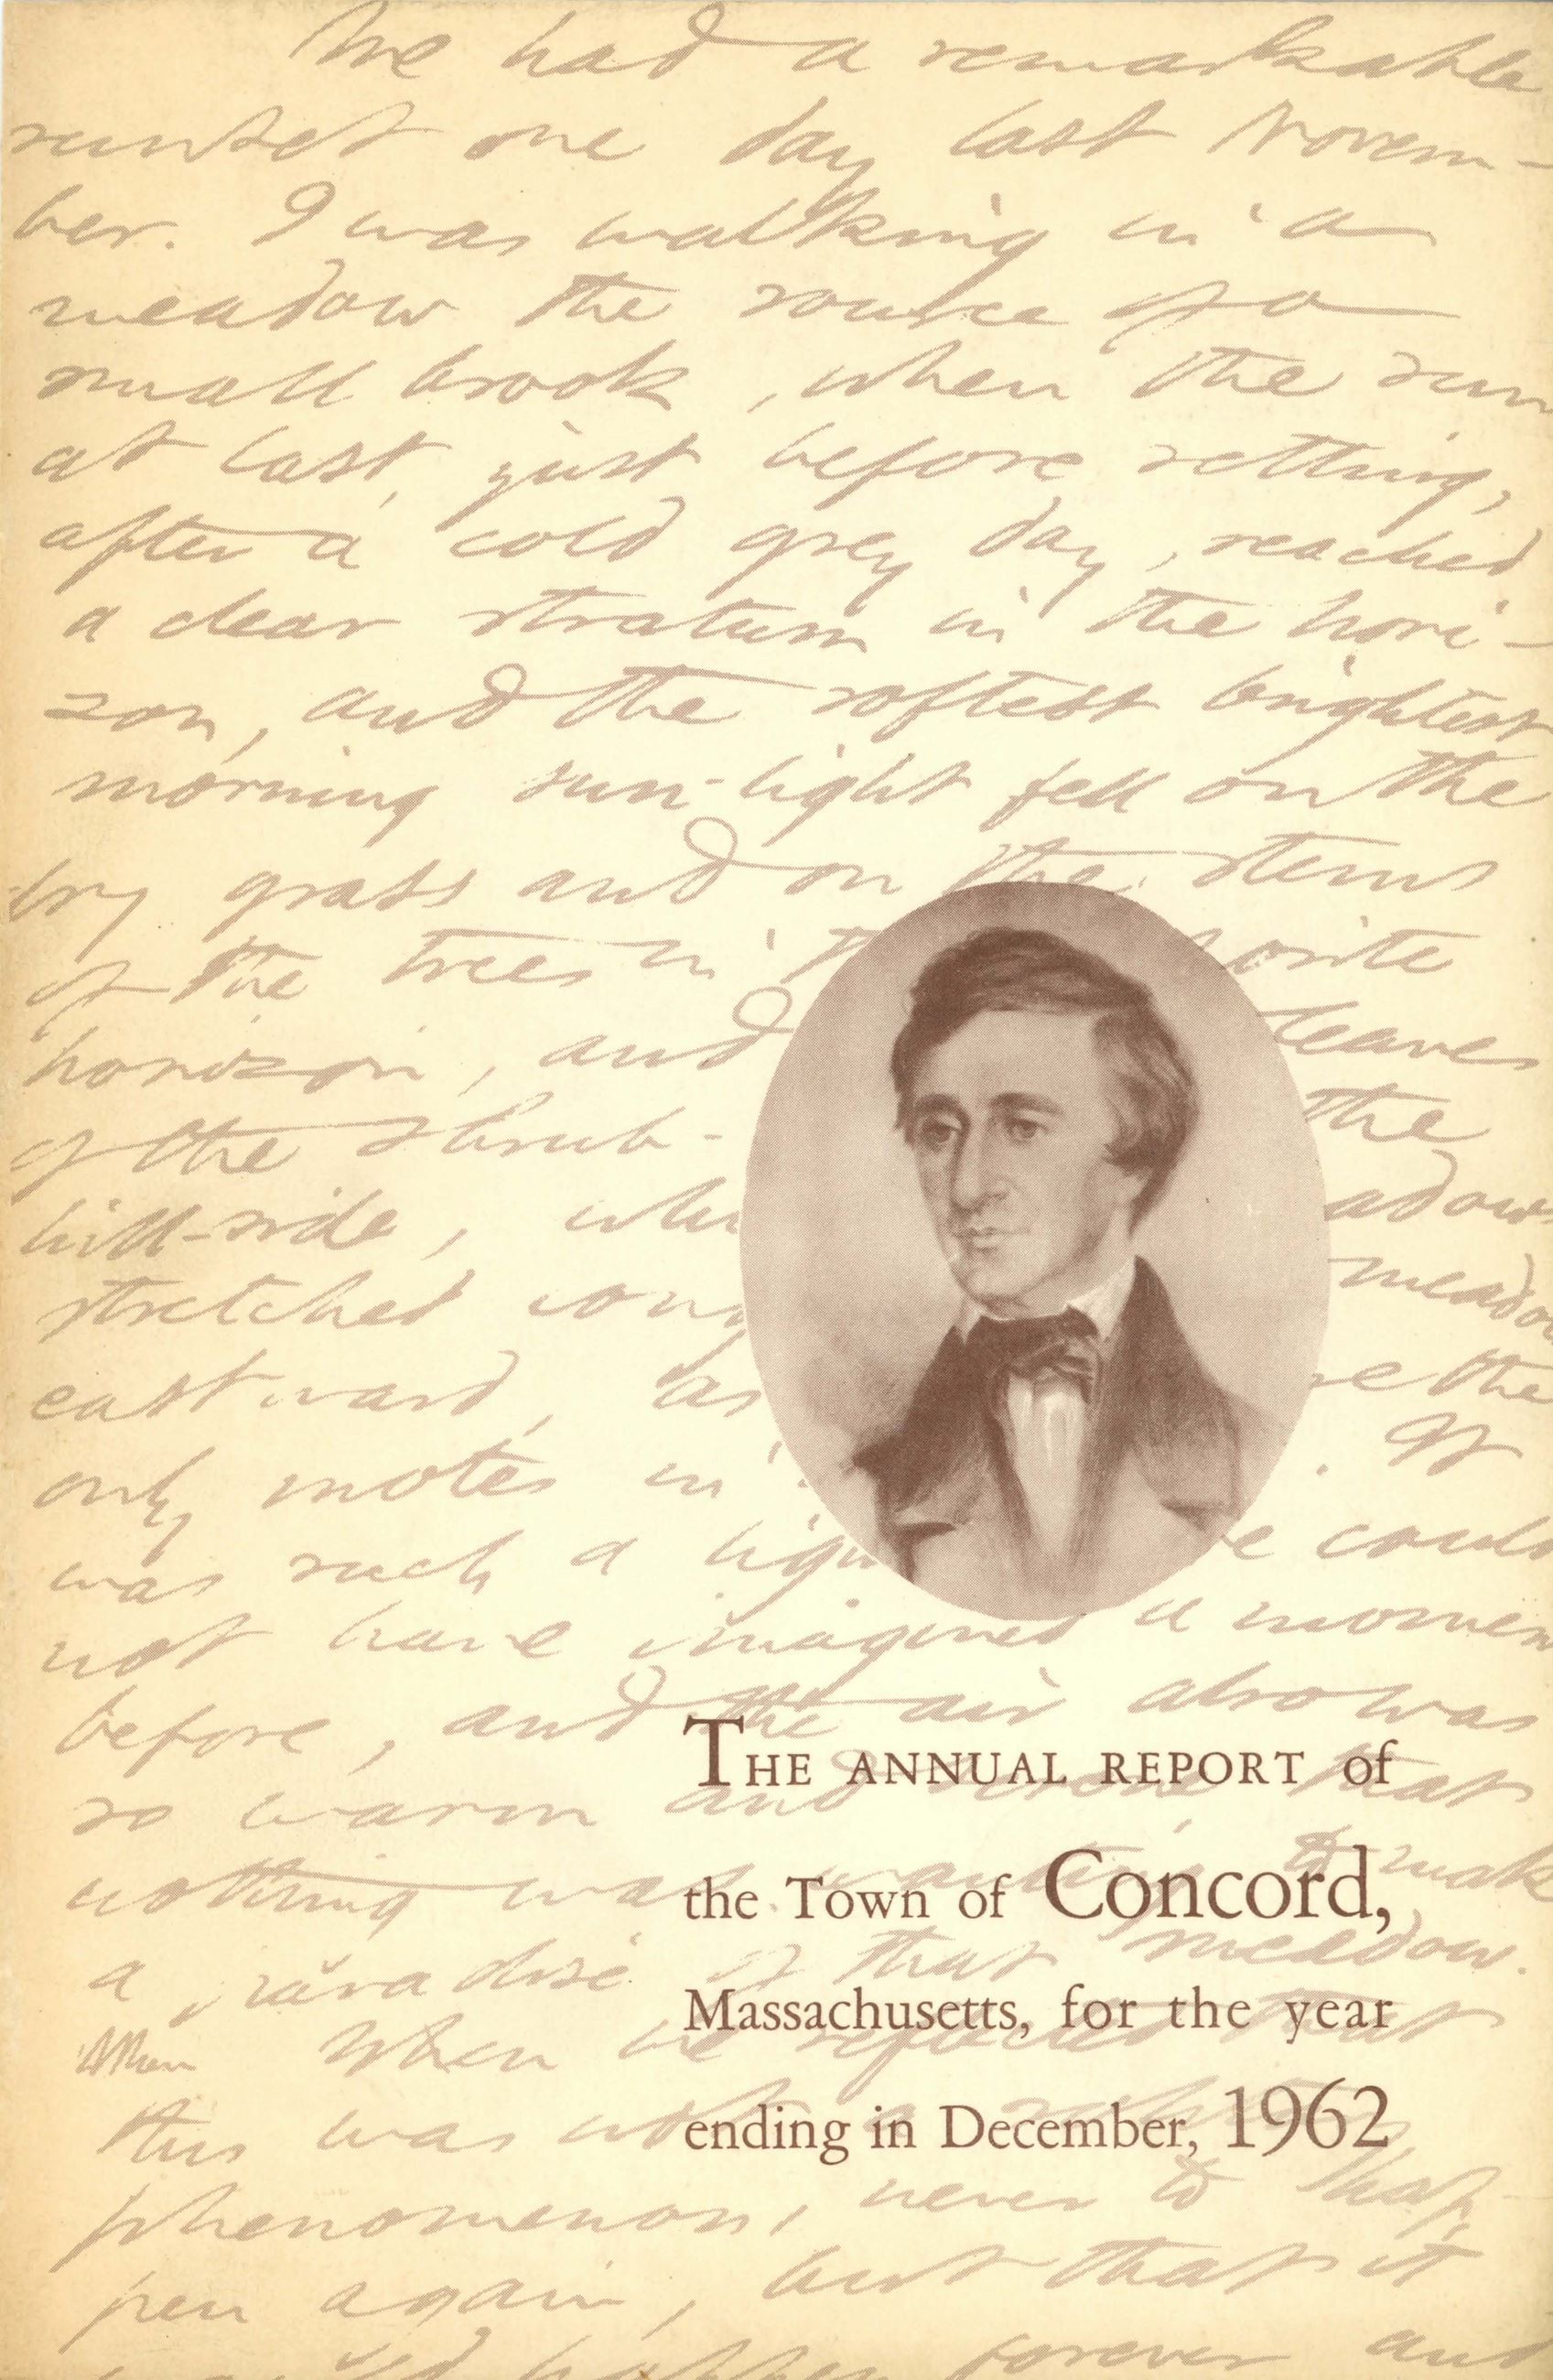 We had a remarkable
sunset one day last Novem-
ber. I was walking in a
meadow the source of a
small brook, when the sun
at last, just before setting,
after a cold grey day, reached
a clear stratum in the hori-
zon, and the softest brightest
morning sun-light fell on the
dry grass and on the stems
of the trees in osite
horizon, and leaves
of the shrub- the
hill-side, whi adows
stretched long meadow
eastward, as re the
only motes in . It
was such a ligh e could
not have imagined a momen
before, and the air also was
so warm and serene that
nothing was wanting to make
a paradise of that meadow.
When we reflected that
this was not a
phenomenon, never to hap-
pen again, but that it
happen forever and
THE ANNUAL REPORT of
the Town of Concord,
Massachusetts, for the year
ending in December, 1962